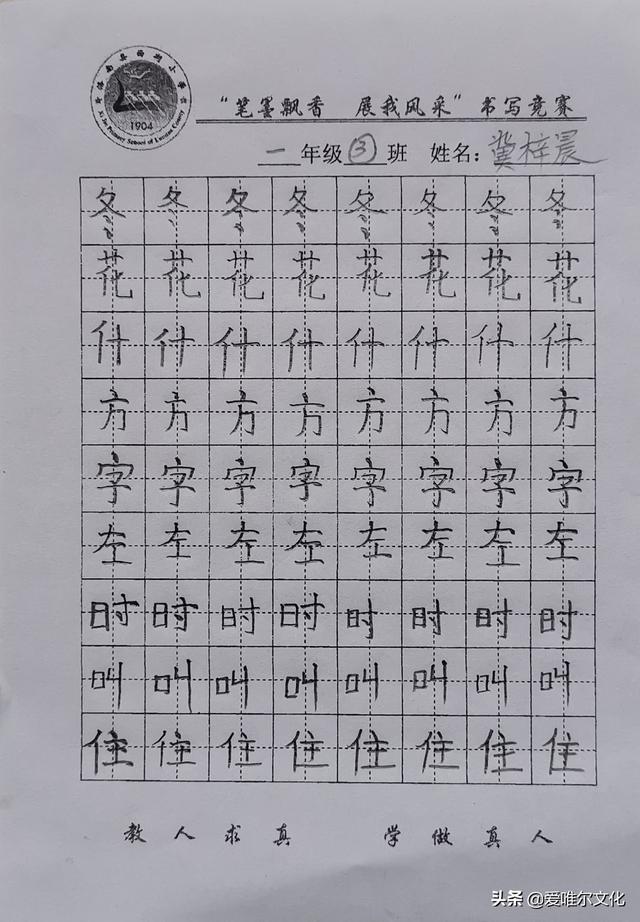 1904
“笔墨飘香 展我风采”书写竞赛
一年级③班 姓名：冀梓晨
冬冬冬冬冬冬冬冬
花花花花花花花花
什什什什什什什什
方方方方方方方方
字字字字字字字字
左左左左左左左左
时时时时时时时时
叫叫叫叫叫叫叫叫
住住住住住住住住
教人求真 学做真人
头条 @爱唯尔文化